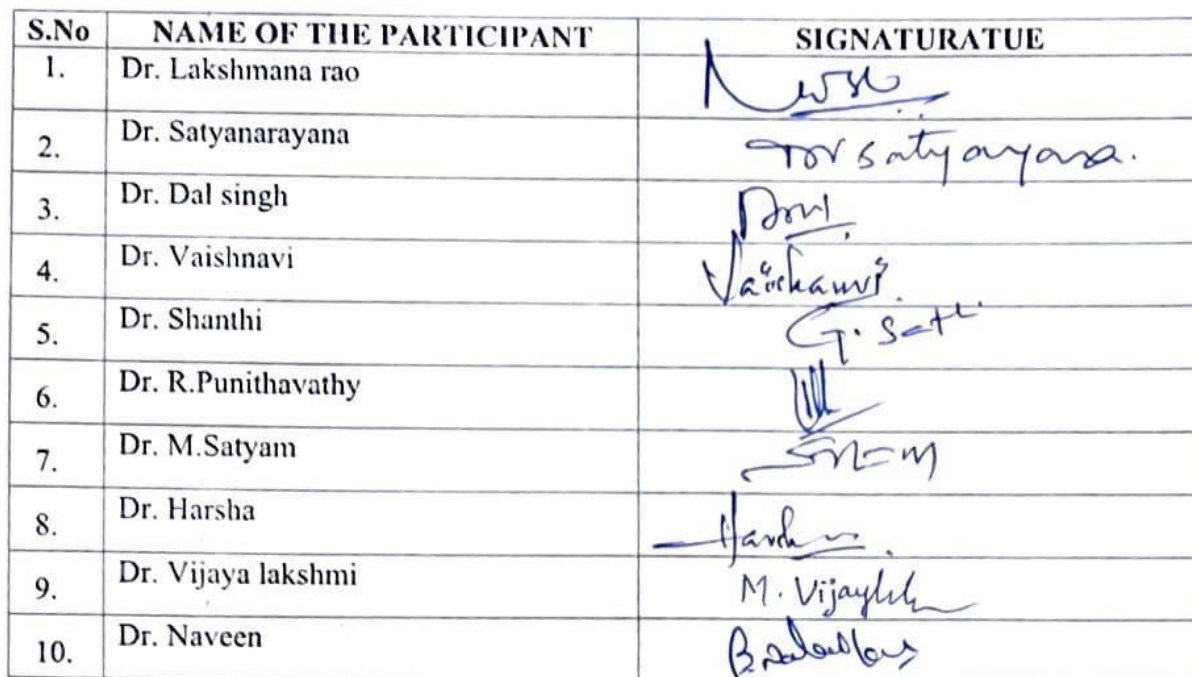 S.No NAME OF THE PARTICIPANT SIGNATURATUE
1. Dr. Lakshmana rao
2. Dr. Satyanarayana
3. Dr. Dal singh
4. Dr. Vaishnavi Vaishanvi
5. Dr. Shanthi G.
6. Dr. R.Punithavathy
7. Dr. M.Satyam
8. Dr. Harsha Harsha
9. Dr. Vijaya lakshmi M. Vijaylk
10. Dr. Naveen